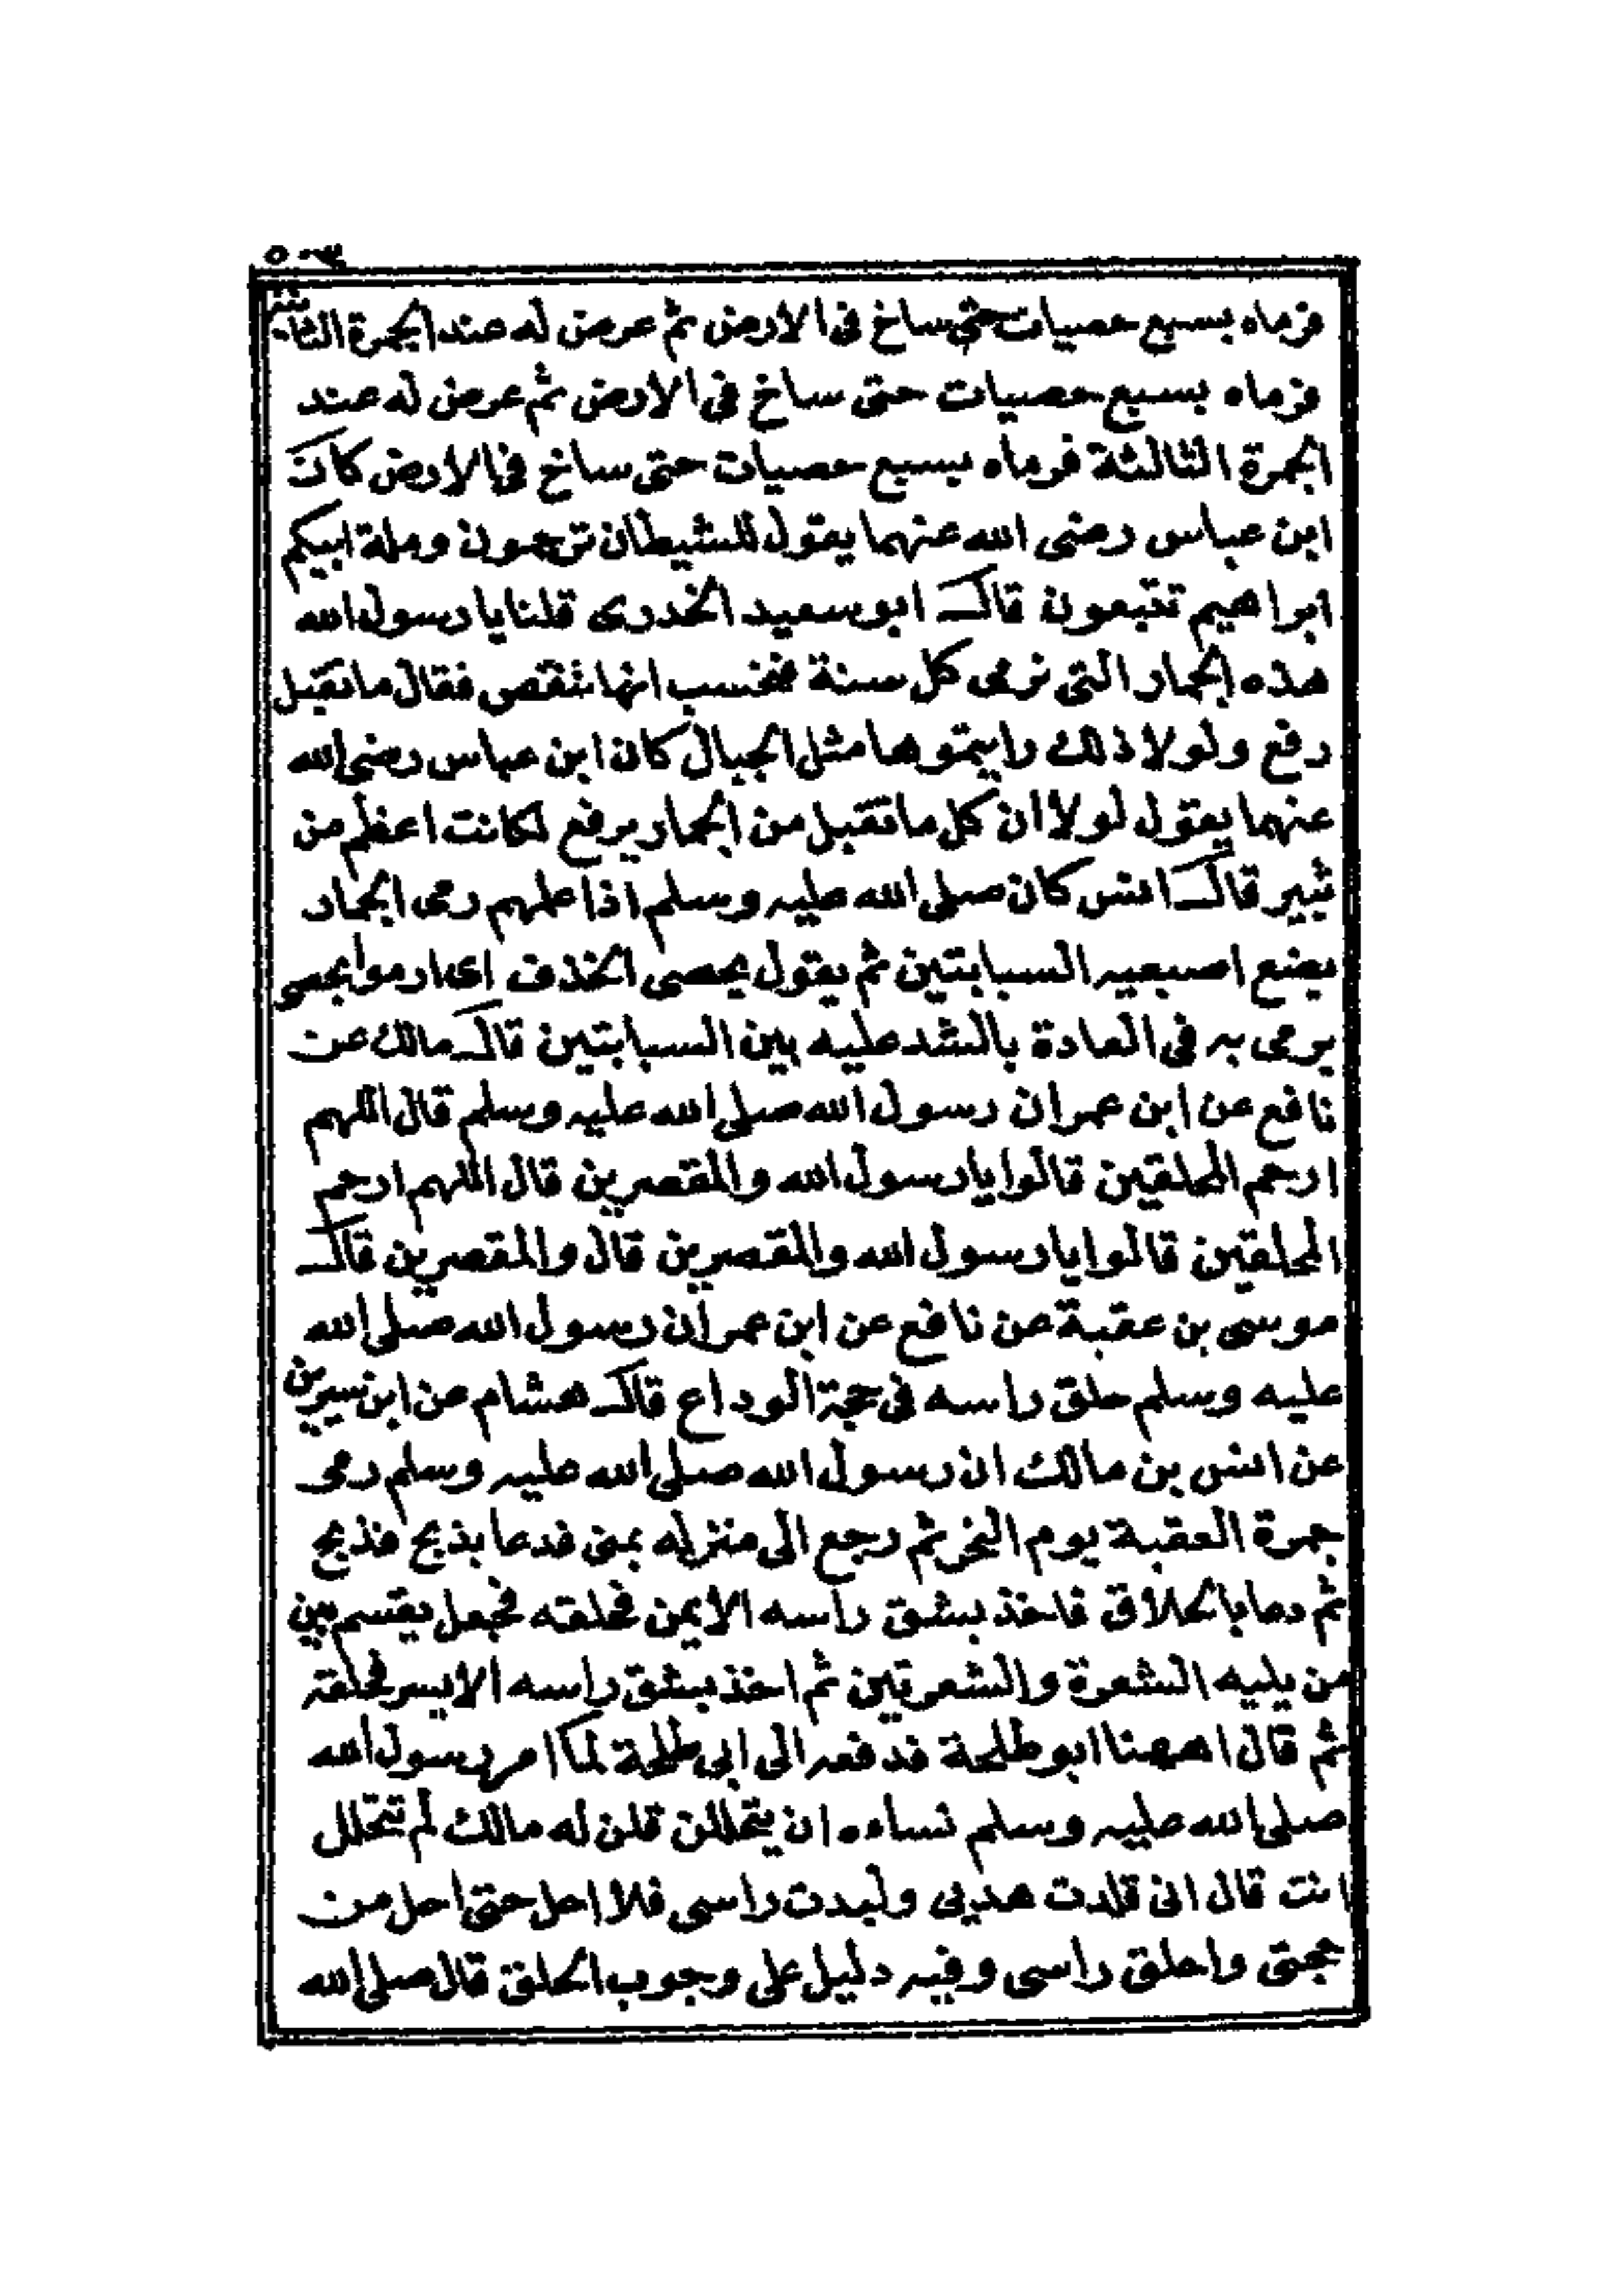 ٥٠٣
فرماه بسبع حصيات حتى ساخ فى الارض ثم عرض له عند الجمرة الثانية
فرماه بسبع حصيات حتى ساخ فى الارض ثم عرض له عند
الجمرة الثالثة فرماه بسبع حصيات حتى ساخ فى الارض كان
ابن عباس رضى الله عنهما يقول للشيطان ترجمون وملة ابيكم
ابراهيم تتبعون قال ابو سعيد الخدرى قلنا يا رسول الله
هذه الجمار التى نرمى كل سنة فنحسب انها تنقص فقال ما تقبل
رفع ولولا ذلك رايتموها مثل الجبال كان ابن عباس رضى الله
عنهما يقول لولا ان كل ما تقبل من الجمار يرفع لكانت اعظم من
ثبير قال انس كان صلى الله عليه وسلم اذا علمهم رمى الجمار
يضع اصبعيه السبابتين ثم يقول بحصى الخذف اى ارموا بحصى
يرمى به فى العادة بالشد عليه بين السبابتين قال مالك عن
نافع عن ابن عمر ان رسول الله صلى الله عليه وسلم قال اللهم
ارحم المحلقين قالوا يا رسول الله والمقصرين قال اللهم ارحم
المحلقين قالوا يا رسول الله والمقصرين قال والمقصرين قال
موسى بن عقبة عن نافع عن ابن عمر ان رسول الله صلى الله
عليه وسلم حلق راسه فى حجة الوداع قال هشام عن ابن سيرين
عن انس بن مالك ان رسول الله صلى الله عليه وسلم رمى
جمرة العقبة يوم النحر ثم رجع الى منزله بمنى فدعا بذبح فذبح
ثم دعا بالحلاق فاخذ بشق راسه الايمن فحلقه فجعل يقسم بين
من يليه الشعرة والشعرتين ثم اخذ بشق راسه الايسر فحلقه
ثم قال اههنا ابو طلحة فدفعه الى ابى طلحة لما امر رسول الله
صلى الله عليه وسلم نساءه ان يتحللن قلن له مالك لم تتحلل
انت قال انى قلدت هديى ولبدت راسى فلا احل حتى احل من
حجتى واحلق راسى وفيه دليل على وجوب الحلق قال صلى الله